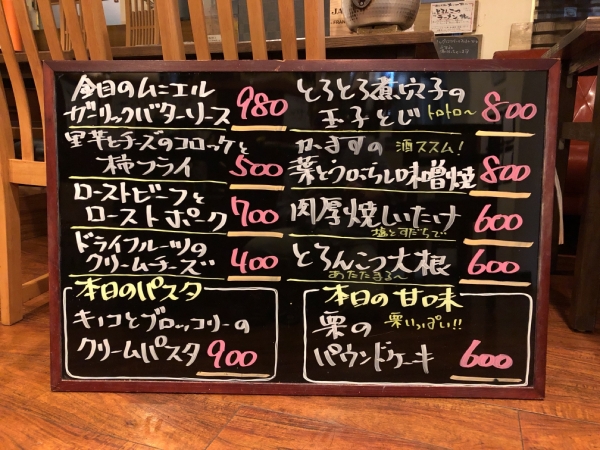 金目のムニエル
ガーリックバターソース 980
里芋とチーズのコロッケと
柿フライ 500
ローストビーフと
ローストポーク 700
ドライフルーツの
クリームチーズ 400
本日のパスタ
キノコとブロッコリーの
クリームパスタ 900
とろとろ煮穴子の
玉子とじ トロトロ〜 800
かますの 酒ススム!
味噌焼 800
肉厚焼しいたけ 600
塩とすだちで
とろんこつ大根 600
あたたまる〜
本日の甘味
栗の 栗いっぱい!!
パウンドケーキ 600